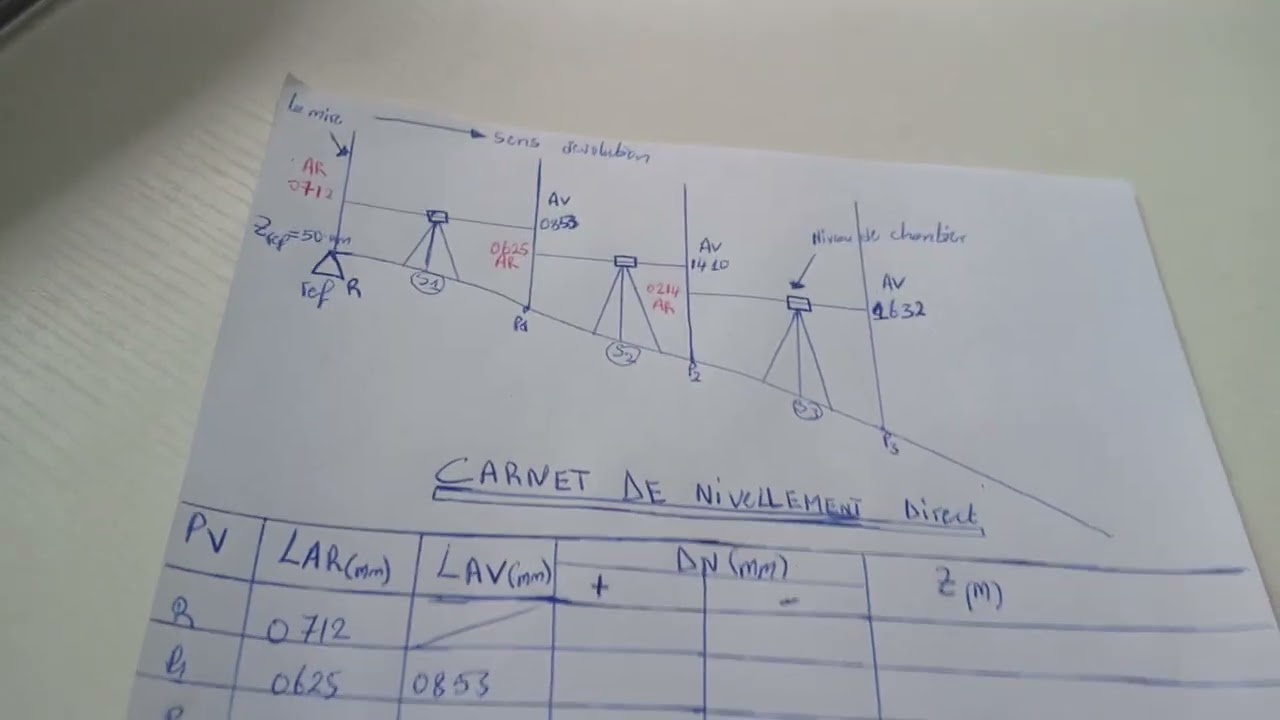 La mire
sens d'évolution
AR
0712
Av
0853
Zrep=50 mm
0625
AR
Av
1410
Niveau de chantier
0214
AR
AV
1632
rep R
S1
P1
S2
P2
S3
P3
CARNET DE NiVELLEMENT Direct
PV LAR(mm) LAV(mm) DN(mm) Z(M)
+ -
R 0712
P1 0625 0853